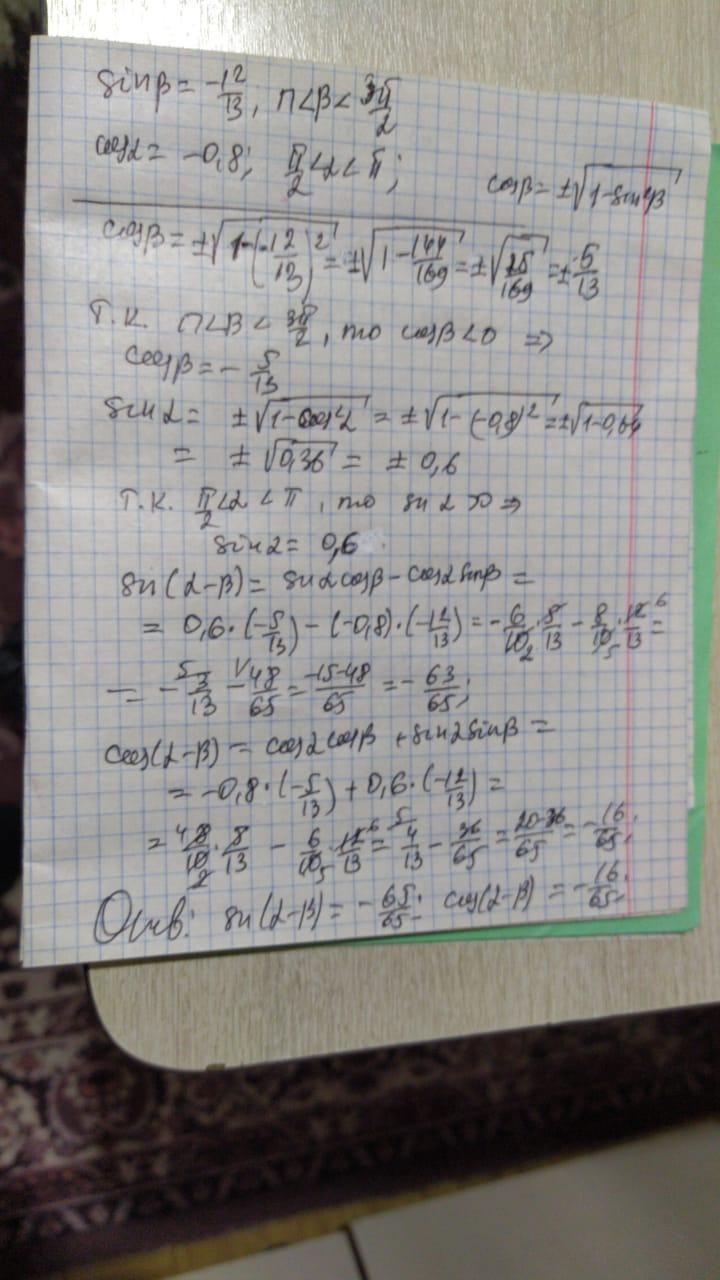 sinβ = -12/13; π<β<3π/2
cosα = -0,8; π/2<α<π;
cosβ = ±√(1-sin²β)
cosβ = ±√(1-(-12/13)²) = ±√(1-144/169) = ±√(25/169) = ±5/13
Т.К. π<β<3π/2, то cosβ<0 ⇒
cosβ = -5/13
sinα = ±√(1-cos²α) = ±√(1-(-0,8)²) = ±√(1-0,64)
= ±√0,36 = ±0,6
Т.К. π/2<α<π, то sinα>0 ⇒
sinα = 0,6
sin(α-β) = sinαcosβ - cosαsinβ =
= 0,6·(-5/13) - (-0,8)·(-12/13) = -6/10·5/13 - 8/10·12/13 =
= -3/13 - 48/65 = (-15-48)/65 = -63/65;
cos(α-β) = cosαcosβ + sinαsinβ =
= -0,8·(-5/13) + 0,6·(-12/13) =
= 8/10·5/13 - 6/10·12/13 = 4/13 - 36/65 = (20-36)/65 = -16/65;
Отв: sin(α-β) = -65/65; cos(α-β) = -16/65.